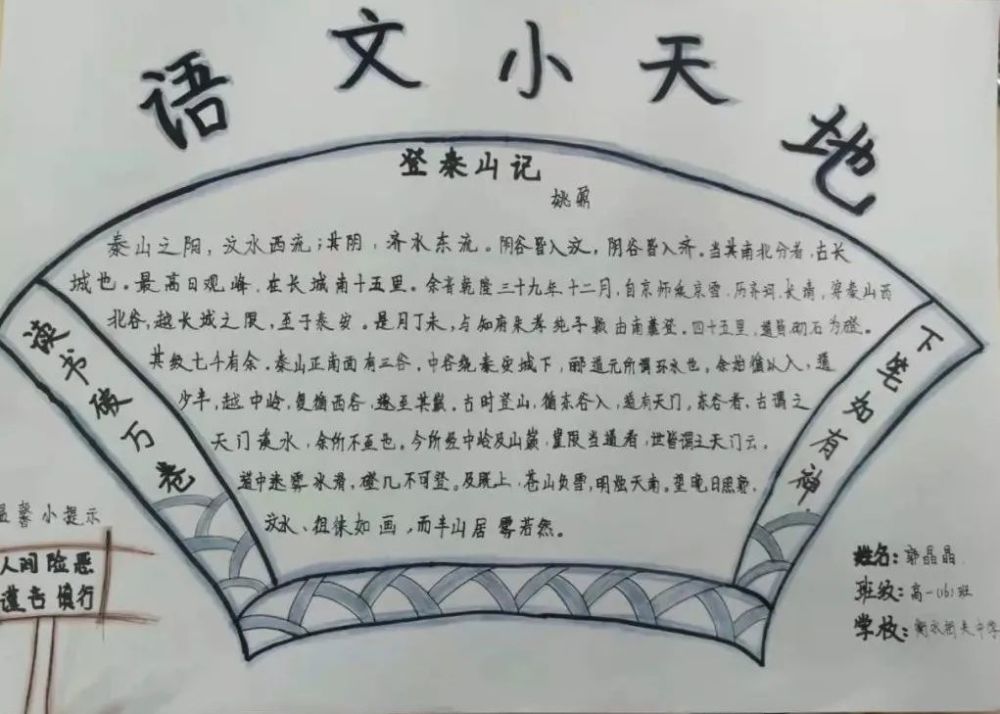 语文小天地
登泰山记
姚鼐
泰山之阳，汶水西流；其阴，济水东流。阳谷皆入汶，阴谷皆入济。当其南北分者，古长
城也。最高日观峰，在长城南十五里。余昔乾隆三十九年十二月，自京师乘京雪，历齐河、长清，穿泰山西
北谷，越长城之限，至于泰安。是月丁未，与知府朱孝纯子颍由南麓登。四十五里，道皆砌石为磴。
其级七千有余。泰山正南面有三谷。中谷绕泰安城下，郦道元所谓环水也。余始循以入，道
少半，越中岭，复循西谷，遂至其巅。古时登山，循东谷入，道有天门。东谷者，古谓之
天门溪水，余所不至也。今所经中岭及山巅，崖限当道者，世皆谓之天门云。
道中迷雾冰滑，磴几不可登。及既上，苍山负雪，明烛天南。望晚日照郭，
汶水、徂徕如画，而半山居雾若然。
读书破万卷
下笔如有神
温馨小提示
人间险恶
谨言慎行
姓名：郭晶晶
班级：高一(16)班
学校：衡水